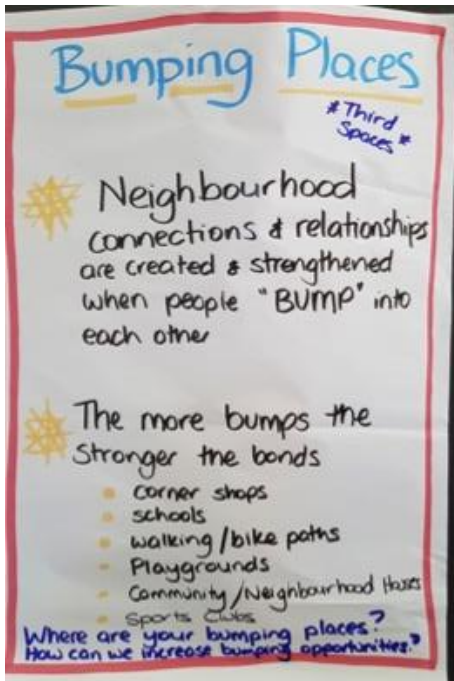 Bumping Places
* Third *
Spaces
Neighbourhood
connections & relationships
are created & strengthened
when people "BUMP" into
each other
The more bumps the
stronger the bonds
corner shops
schools
walking/bike paths
Playgrounds
Community/Neighbourhood Houses
Sports Clubs
Where are your bumping places?
How can we increase bumping opportunities?